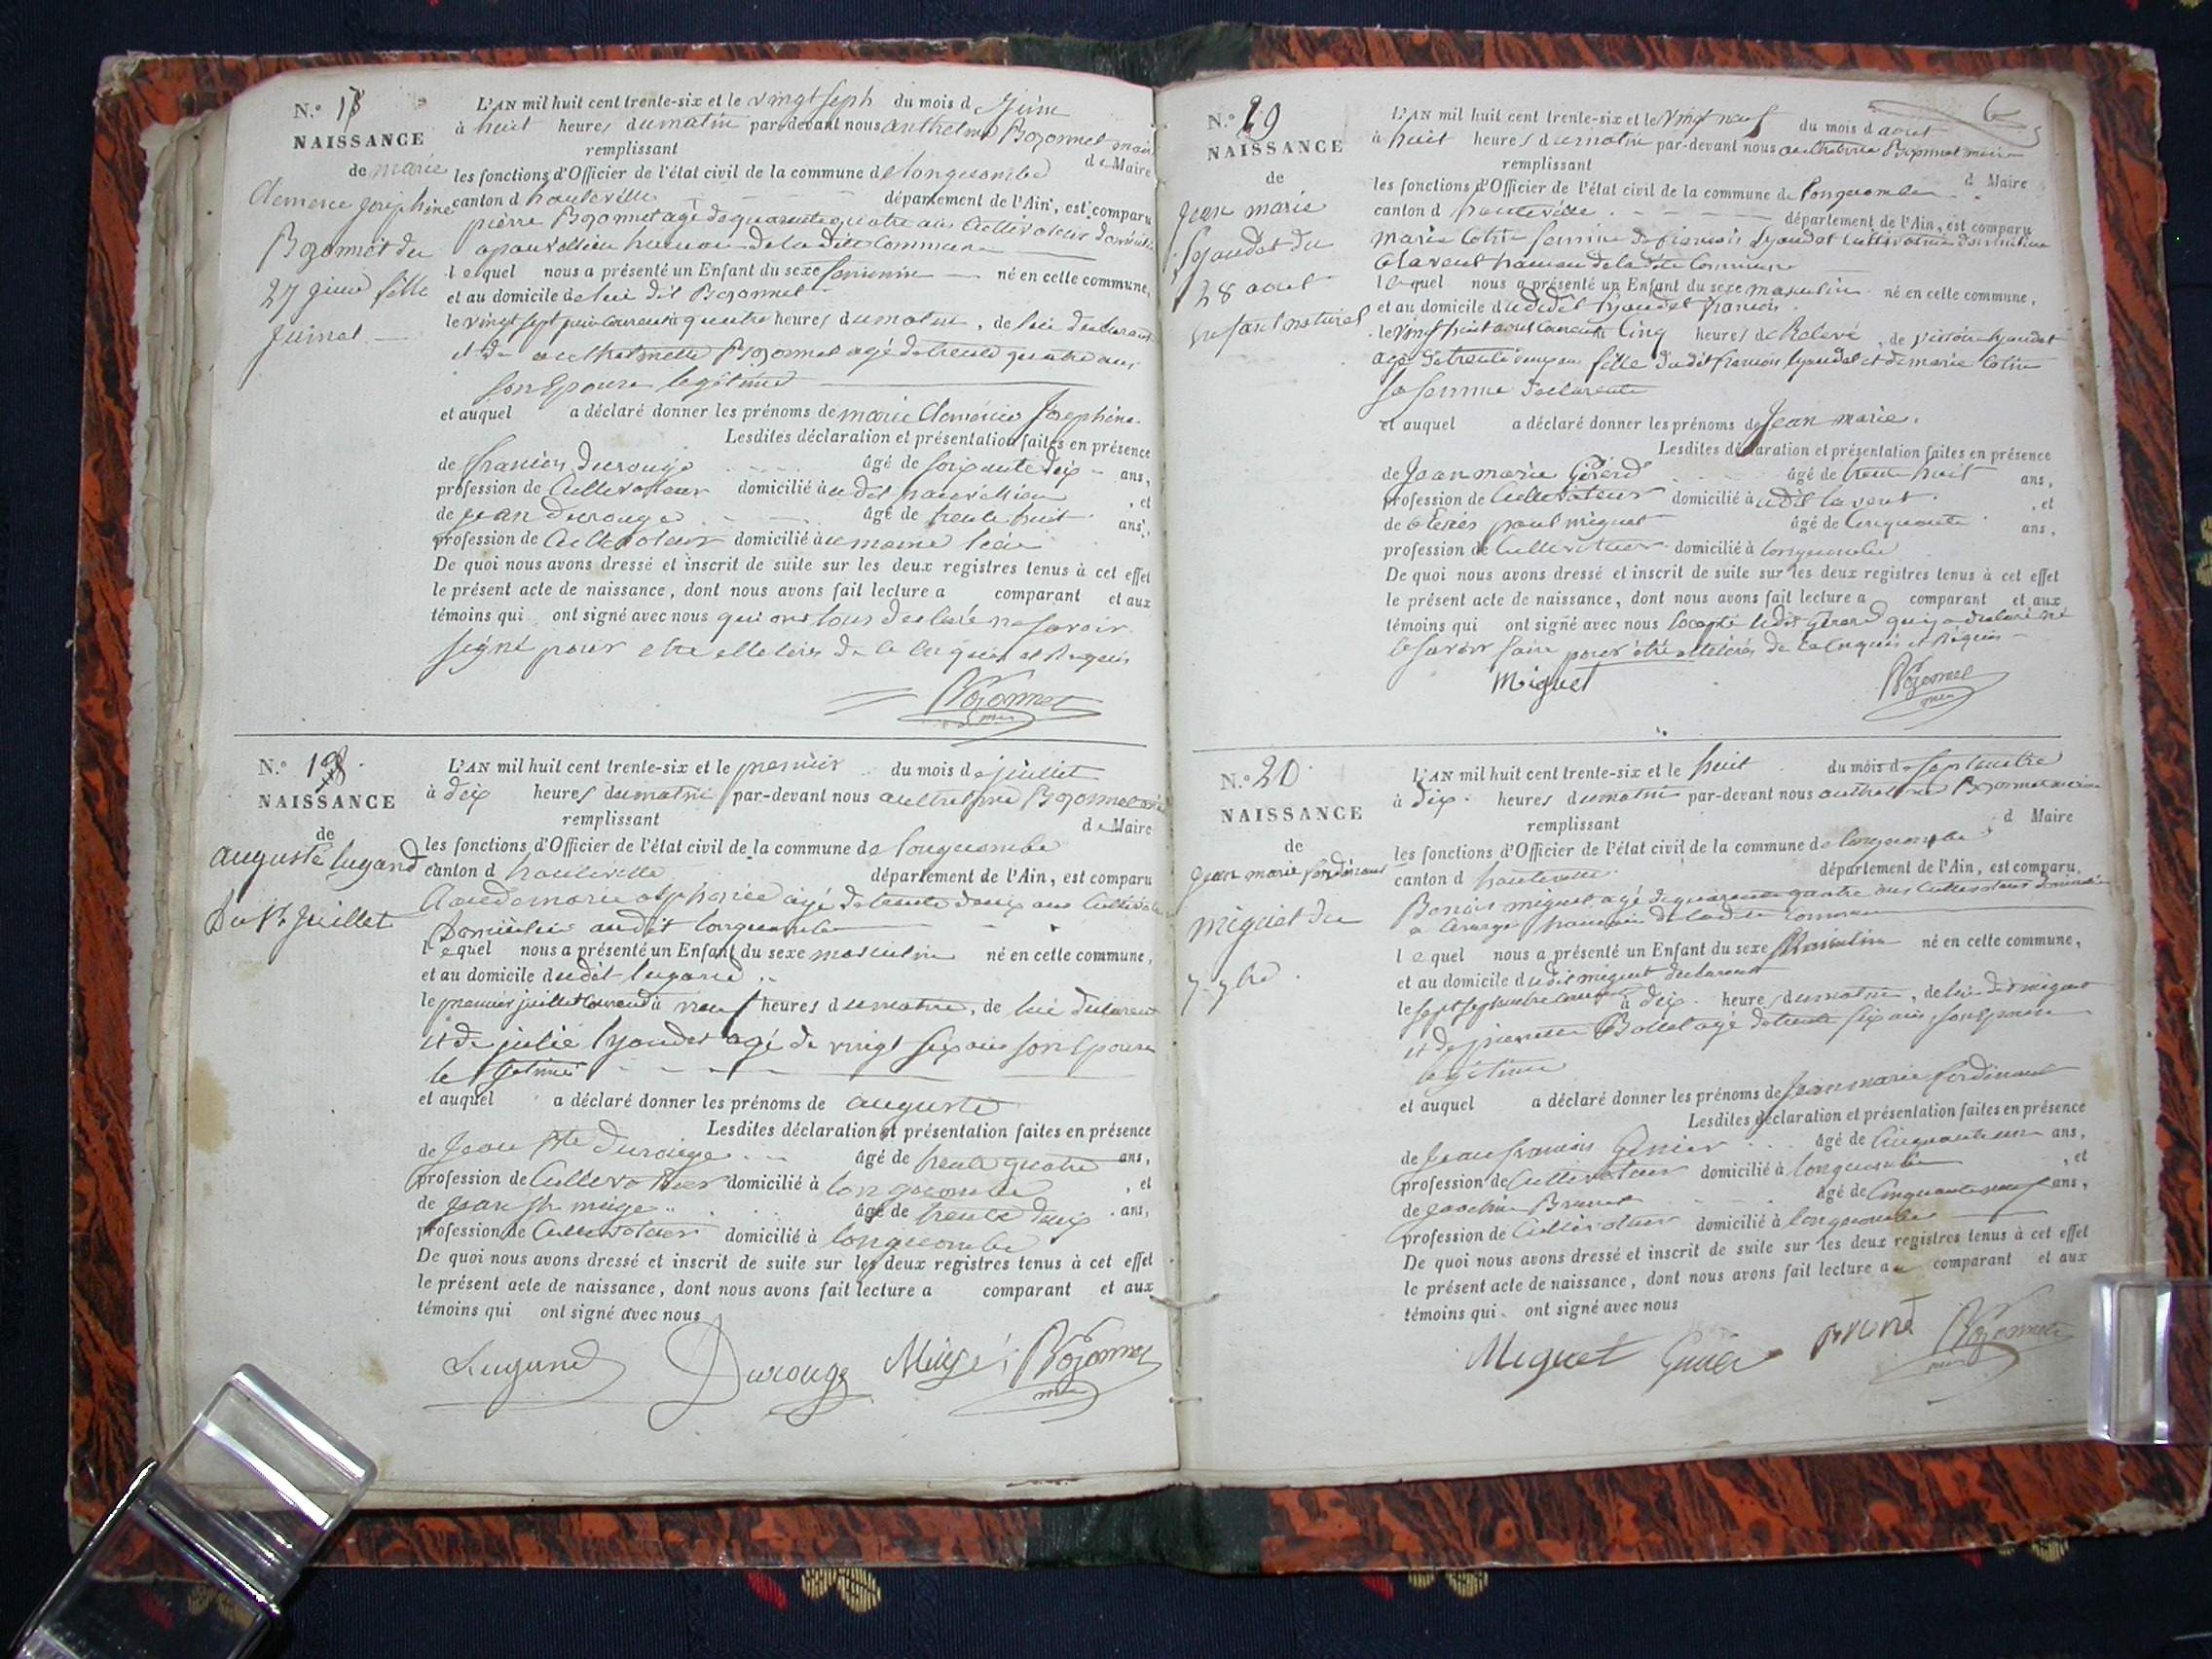 N.° 17
NAISSANCE
de marie
Clemence Josephine
Bozonnet du
27 juin fille
jumel
L'AN mil huit cent trente-six et le vingt sept du mois de Juin
à huit heures du matin par-devant nous anthelme Bozonnet maire
remplissant de Maire
les fonctions d'Officier de l'état civil de la commune de longecombe
canton d hauteville département de l'Ain, est comparu
pierre Bozonnet agé de quarante quatre ans Cultivateur domicilié
hameau de la dite Commune
lequel nous a présenté un Enfant du sexe feminin né en cette commune,
et au domicile de lui dit Bozonnet
le vingt sept juin courent à quatre heures du matin, de lui declarant
et de anthelmette Bozonnet agé de trente quatre ans
son Epouse legitime
et auquel a déclaré donner les prénoms de marie Clemence Josephine
Lesdites déclaration et présentation faites en présence
de francois Durouge âgé de soixante dix ans,
profession de Cultivateur domicilié au dit , et
de jean Durouge âgé de trente huit ans,
profession de Cultivateur domicilié au meme lieu
De quoi nous avons dressé et inscrit de suite sur les deux registres tenus à cet effet
le présent acte de naissance, dont nous avons fait lecture a comparant et aux
témoins qui ont signé avec nous qui ont tous declaré ne savoir
signé pour etre de ce enquis et Requis
Bozonnet
N.° 18
NAISSANCE
de
auguste lugand
Du 1er Juillet
L'AN mil huit cent trente-six et le premier du mois de juillet
à dix heures du matin par-devant nous anthelme Bozonnet
remplissant de Maire
les fonctions d'Officier de l'état civil de la commune de longecombe
canton d hauteville département de l'Ain, est comparu
agé de trente deux ans Cultivateur
Domicilié audit longecombe
lequel nous a présenté un Enfant du sexe masculin né en cette commune,
et au domicile dudit lugand
le premier juillet courend à neuf heures du matin, de lui declarent
et de julie lyaudet agé de vingt six ans son Epouse
legitime
et auquel a déclaré donner les prénoms de auguste
Lesdites déclaration et présentation faites en présence
de Jean Bte Durouge âgé de trente quatre ans,
profession de Cultivateur domicilié à longecombe , et
de jean miege âgé de trente deux ans,
profession de Cultivateur domicilié à longecombe
De quoi nous avons dressé et inscrit de suite sur les deux registres tenus à cet effet
le présent acte de naissance, dont nous avons fait lecture a comparant et aux
témoins qui ont signé avec nous
Lugand Durouge Miége Bozonnet
6
N.° 19
NAISSANCE
de
jean marie
lyaudet du
28 aout
enfant naturel
L'AN mil huit cent trente-six et le Vingt neuf du mois d aout
à huit heures du matin par-devant nous anthelme Bozonnet maire
remplissant d Maire
les fonctions d'Officier de l'état civil de la commune de longecombe
canton d hauteville département de l'Ain, est comparu
marie Cotin femme de francois lyaudet Cultivateur domicilié
a lavent hameau de la dite Commune
lequel nous a présenté un Enfant du sexe masculin né en cette commune,
et au domicile dudit lyaudet francois
le vingt huit aout courent à Cinq heures de Relevé, de lyaudet
agé de trente fille dudit francois lyaudet et de marie Cotin
sa femme declarente
et auquel a déclaré donner les prénoms de Jean marie.
Lesdites déclaration et présentation faites en présence
de Jean marie Gérerd âgé de trente huit ans,
profession de Cultivateur domicilié audit lavent , et
de alexis paul miguet âgé de Cinquante ans,
profession de Cultivateur domicilié à longecombe
De quoi nous avons dressé et inscrit de suite sur les deux registres tenus à cet effet
le présent acte de naissance, dont nous avons fait lecture a comparant et aux
témoins qui ont signé avec nous ledit Gérerd qui a declaré ne
le savoir faire pour être de ce enquis et Réquis
Miguet Bozonnet
N.° 20
NAISSANCE
de
jean marie ferdinand
miguet du
7 7bre
L'AN mil huit cent trente-six et le huit du mois de septembre
à dix heures du matin par-devant nous anthelme Bozonnet maire
remplissant d Maire
les fonctions d'Officier de l'état civil de la commune de longecombe
canton d hauteville département de l'Ain, est comparu
Benoit miguet agé de quarante quatre ans Cultivateur domicilié
hameau de la dite commune
lequel nous a présenté un Enfant du sexe Masculin né en cette commune,
et au domicile dudit miguet declarant
le sept septembre courent à dix heures du matin, de lui dit miguet
et de agé de trente six ans, son Epouse
legitime
et auquel a déclaré donner les prénoms de Jean marie ferdinand
Lesdites déclaration et présentation faites en présence
de Jean francois Genier âgé de Cinquante ans,
profession de Cultivateur domicilié à longecombe , et
de joachim Brunet âgé de Cinquante neuf ans,
profession de Cultivateur domicilié à longecombe
De quoi nous avons dressé et inscrit de suite sur les deux registres tenus à cet effet
le présent acte de naissance, dont nous avons fait lecture au comparant et aux
témoins qui ont signé avec nous
Miguet Bozonnet